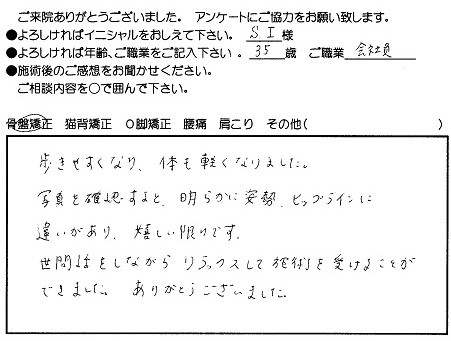 ご来院ありがとうございました。 アンケートにご協力をお願い致します。
●よろしければイニシャルをおしえて下さい。 S I 様
●よろしければ年齢、ご職業をご記入下さい 。 35 歳 ご職業 会社員
●施術後のご感想をお聞かせください。
ご相談内容を○で囲んで下さい。
骨盤矯正 猫背矯正 O脚矯正 腰痛 肩こり その他( )
歩きやすくなり、体も軽くなりました。
写真を確認すると、明らかに姿勢、ヒップラインに
違いがあり、嬉しい限りです。
世間話をしながら リラックスして施術を受けることが
できました。 ありがとうございました。